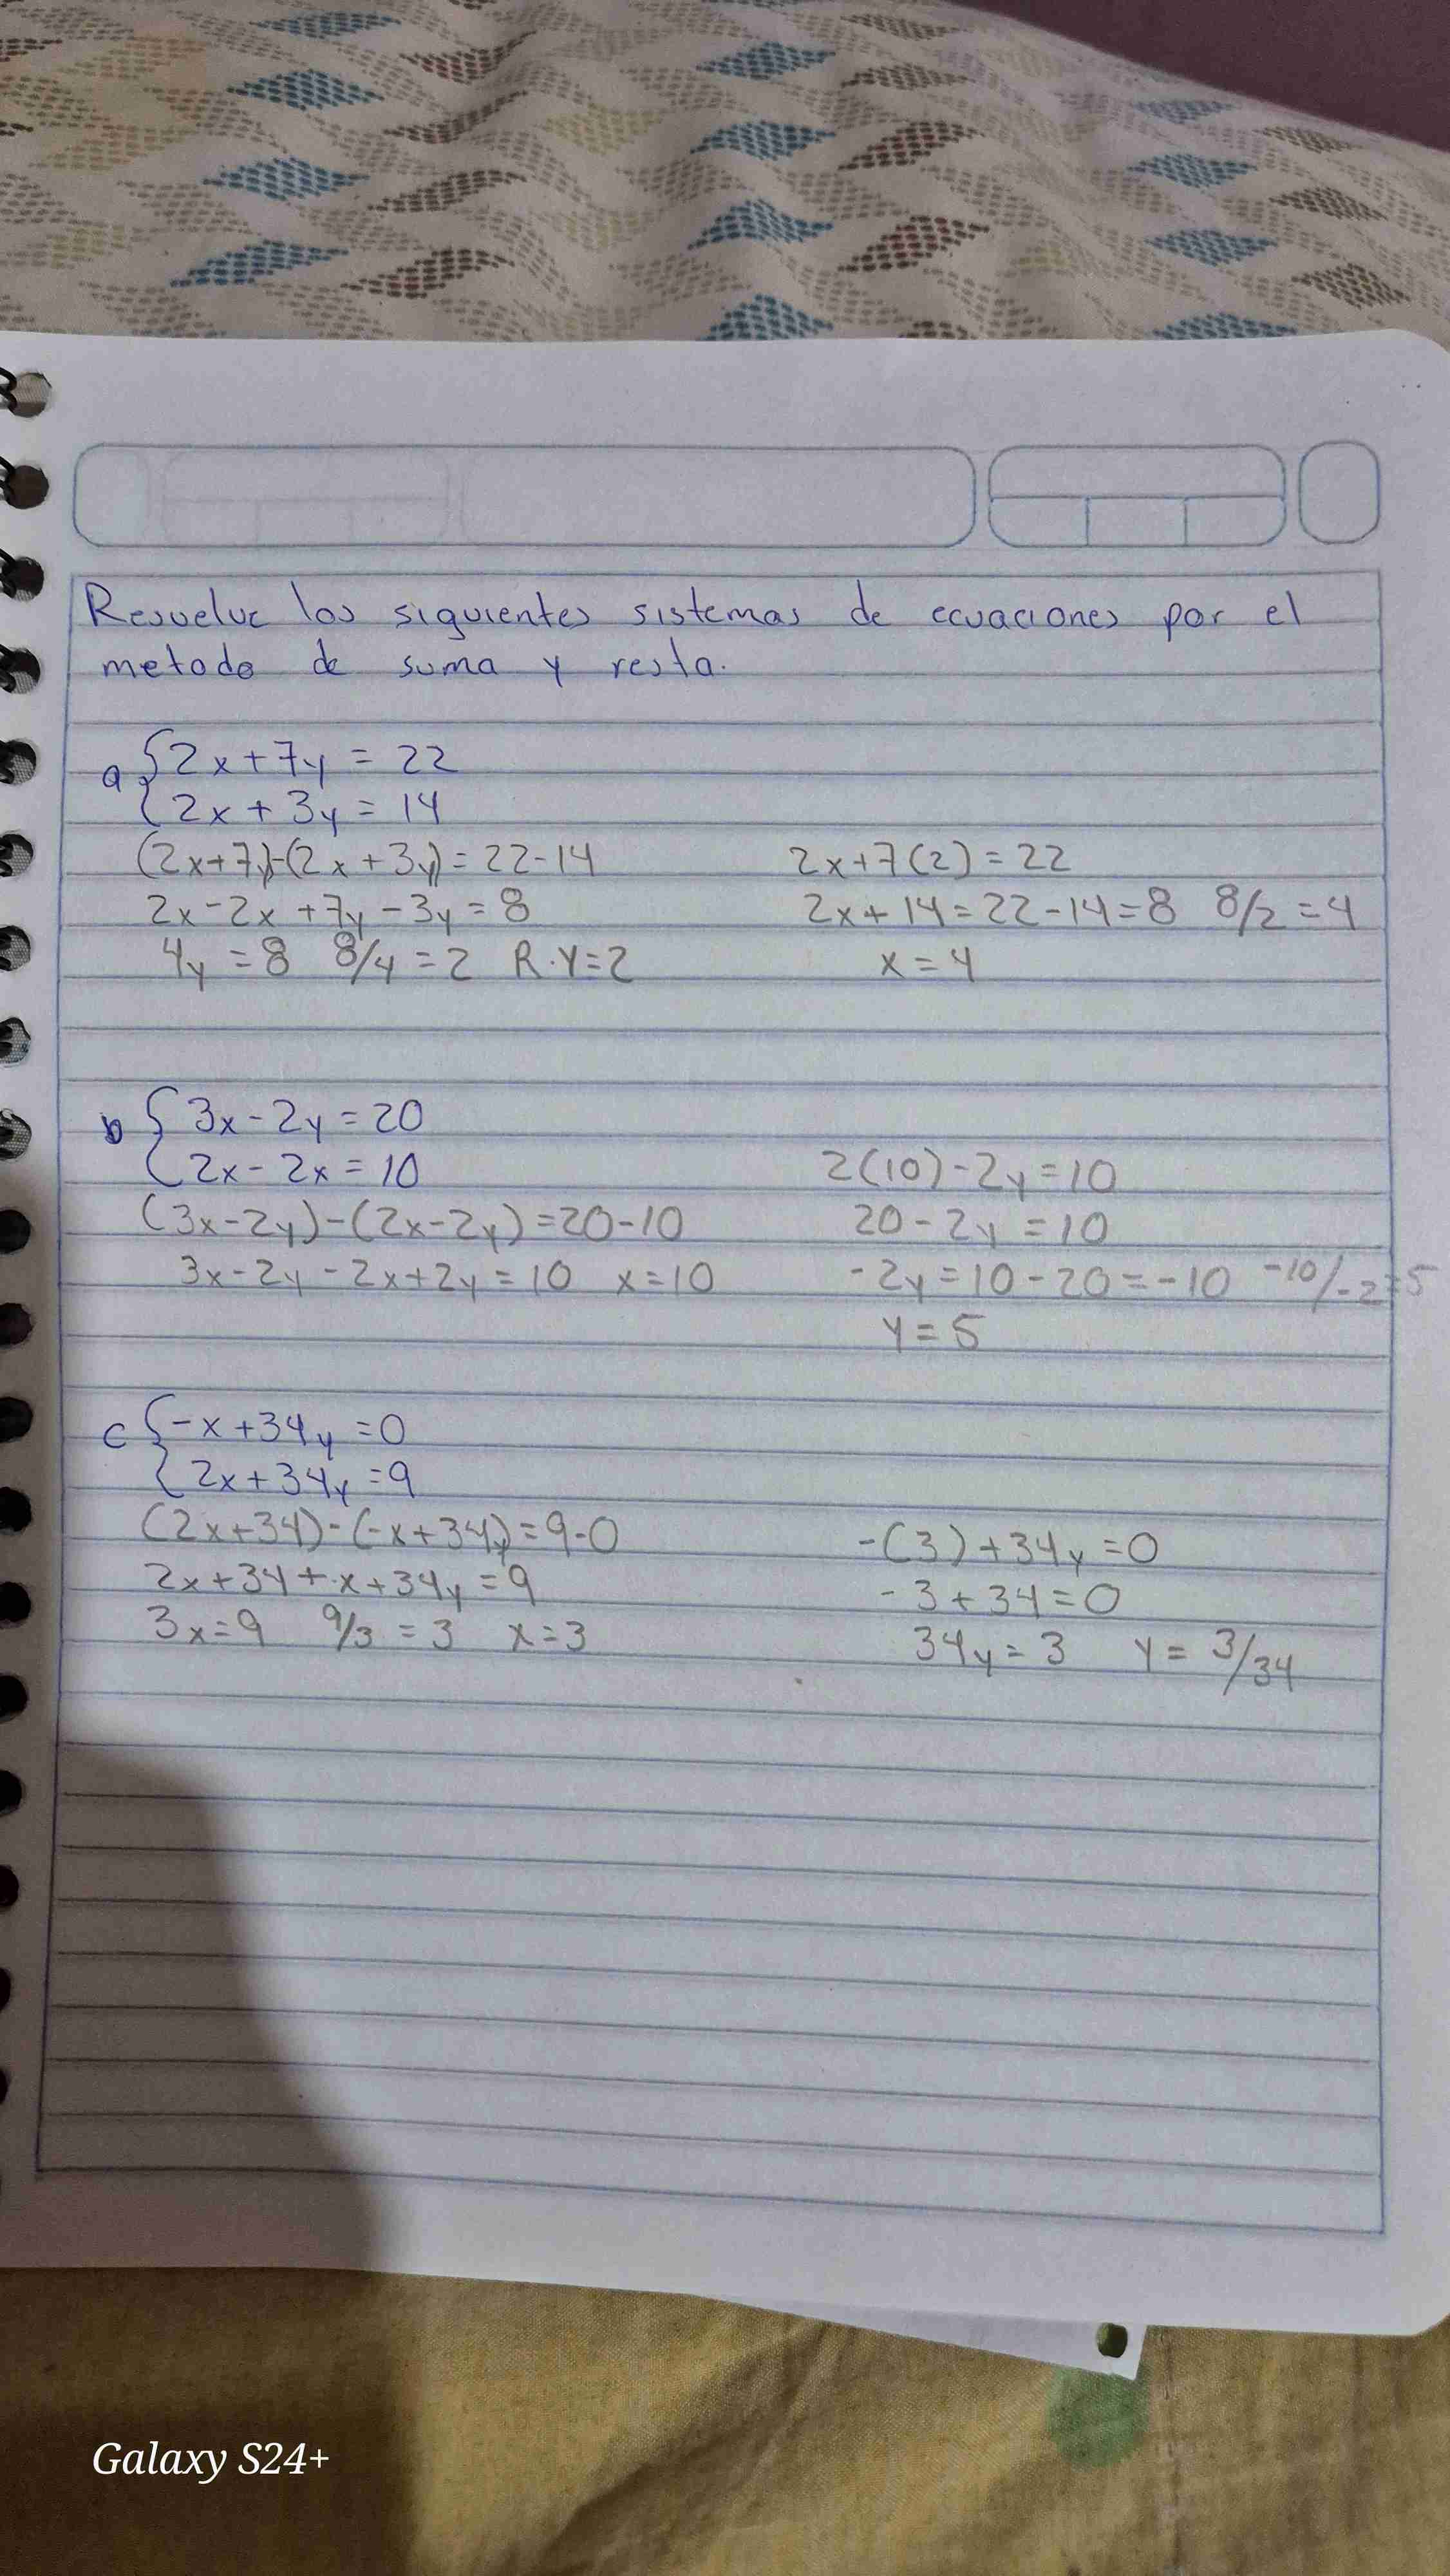 Resuelve los siguientes sistemas de ecuaciones por el
metodo de suma y resta.
a { 2x + 7y = 22
{ 2x + 3y = 14
(2x+7y)-(2x+3y) = 22-14
2x-2x+7y-3y=8
4y=8 8/4=2 R.Y=2
2x+7(2)=22
2x+14=22-14=8 8/2=4
x=4
b { 3x-2y=20
{ 2x-2x=10
(3x-2y)-(2x-2y)=20-10
3x-2y-2x+2y=10 x=10
2(10)-2y=10
20-2y=10
-2y=10-20=-10 -10/-2=5
y=5
c { -x+34y=0
{ 2x+34y=9
(2x+34)-(-x+34y)=9-0
2x+34+x+34y=9
3x=9 9/3=3 x=3
-(3)+34y=0
-3+34=0
34y=3 y=3/34
Galaxy S24+